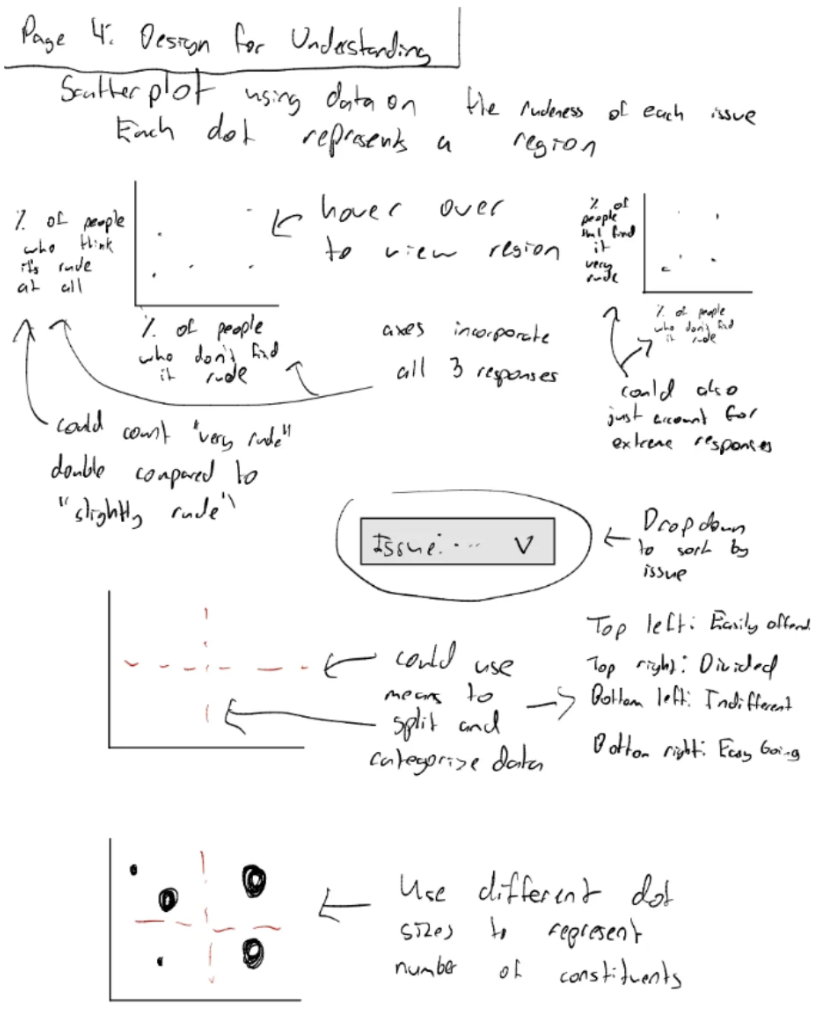 Page 4: Design for Understanding
Scatterplot using data on the rudeness of each issue
Each dot represents a region
% of people
who think
it's rude
at all
% of people
who don't find
it rude
hover over
to view region
axes incorporate
all 3 responses
could count "very rude"
double compared to
"slightly rude"
% of
people
that find
it
very
rude
% of people
who don't find
it rude
could also
just account for
extreme responses
Issue: ... V
Dropdown
to sort by
issue
could use
means to
split and
categorise data
Top left: Easily offend
Top right: Divided
Bottom left: Indifferent
Bottom right: Easy Going
Use different dot
sizes to represent
number of constituents